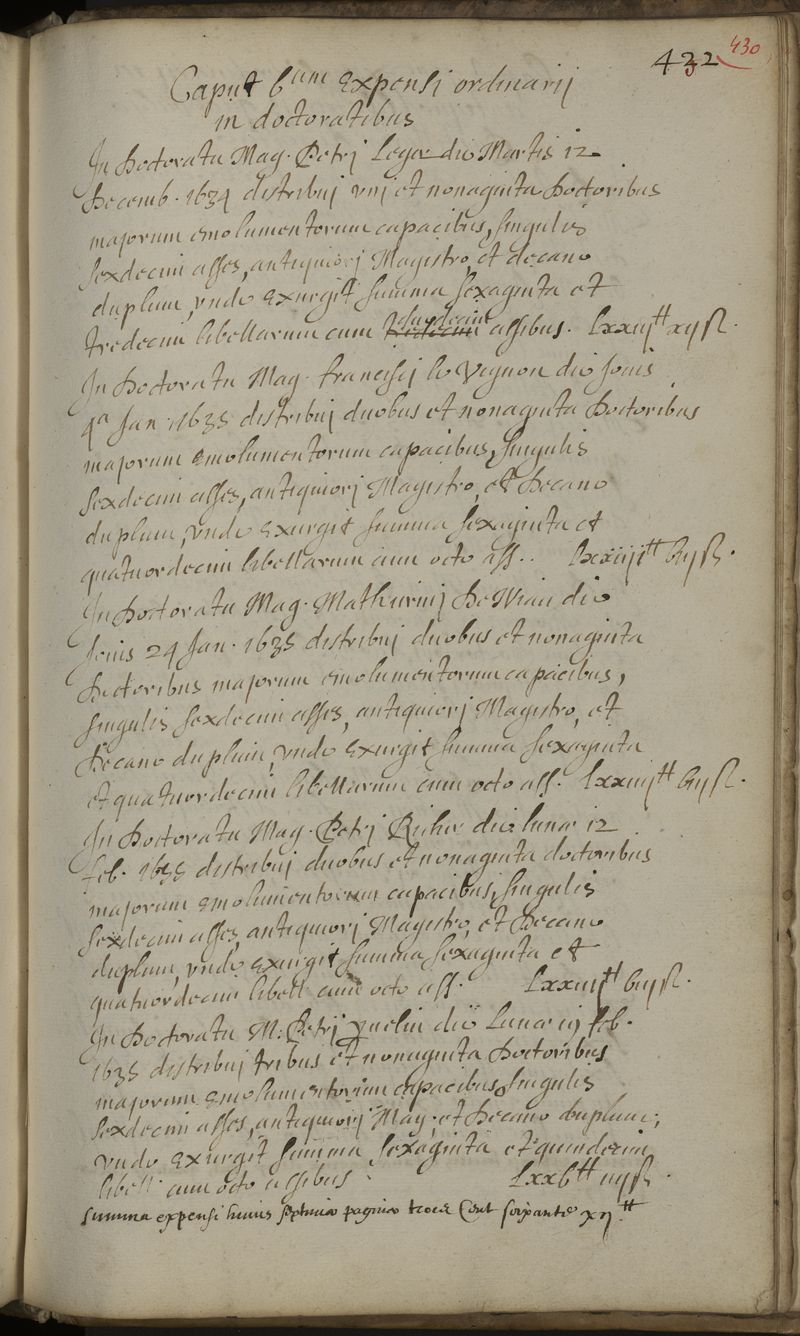 432 430
Caput 6um Expensi ordinarij
in doctoratibus
In Doctoratu Mag. Petrj Leger die Martis 12
Decemb. 1634 distribuj vni et nonaginta Doctoribus
majorum emolumentorum capacibus, singulis
sexdecim asses, antiquiorj Magistro et decano
duplum, vnde exurgit summa sexaginta et
duodecim
tredecim libellarum cum tredecim assibus. lxxiij tt xij ß.
In Doctoratu Mag. Francisij le Vignon die Jouis
4a Jan. 1635 distribuj duobus et nonaginta Doctoribus
majorum emolumentorum capacibus, singulis
sexdecim asses, antiquiorj Magistro, et Decano
duplum, vnde exurgit summa sexaginta et
quatuordecim libellarum cum octo ass.. lxxiiij tt viij ß.
In Doctoratu Mag. Mathurinij Deniau die
Jouis 24 Jan. 1635 distribuj duobus et nonaginta
Doctoribus majorum emolumentorum capacibus,
singulis sexdecim asses, antiquiorj Magistro, et
Decano duplum, vnde exurgit summa sexaginta
et quatuordecim libellarum cum octo ass. lxxiiij tt viij ß.
In Doctoratu Mag. Petrj Richer die lunae 12
Feb. 1635 distribuj duobus et nonaginta doctoribus
majorum emolumentorum capacibus, singulis
sexdecim asses, antiquiorj Magistro, et Decano
duplum, vnde exurgit summa sexaginta et
quatuordecim libell. cum octo ass. lxxiiij tt viij ß.
In Doctoratu M. Petrij yuelin die Lunae 19 feb.
1635 distribuj tribus et nonaginta Doctoribus
majorum emolumentorum capacibus singulis
sexdecim asses, antiquiorj Mag. et Decano duplum;
vnde exurgit summa sexaginta et quindecim
libell. cum octo assibus. lxxv tt iiij ß.
summa expensi huius septimae paginae trois Cent soixante xij tt